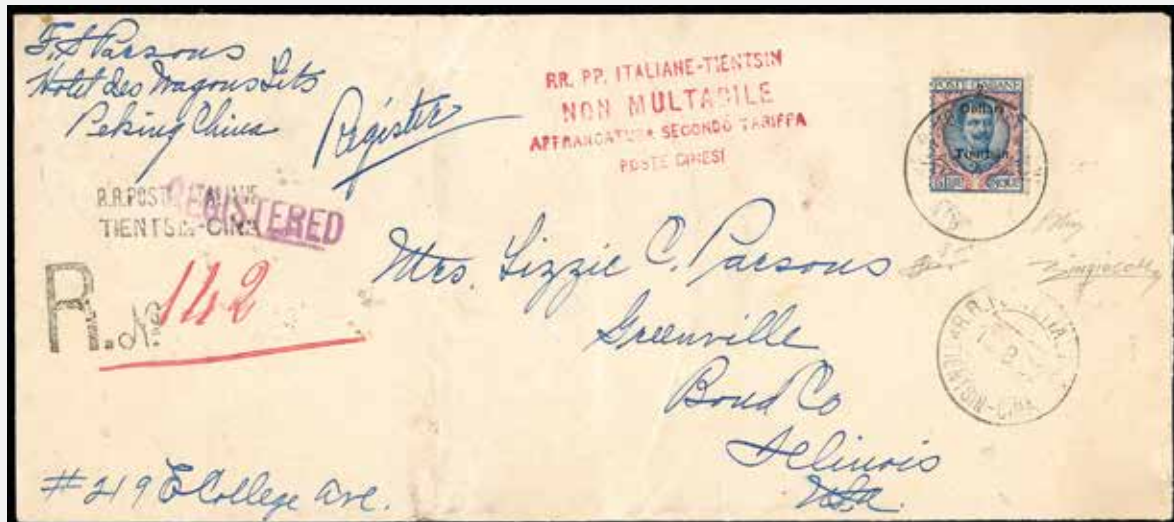 F. S Parsons
Hotel des Wagons Lits
Peking China
Register
RR. PP. ITALIANE-TIENTSIN
NON MULTABILE
AFFRANCATURA SECONDO TARIFFA
POSTE CINESI
POSTE ITALIANE
2
Dollari
Tientsin
R.R. POSTE ITALIANE
TIENTSIN-CINA
REGISTERED
R. No. 142
Mrs. Lizzie C. Parsons
Greenville
Bond Co
Illinois
USA.
TIENTSIN-CINA
#219 E College Ave.